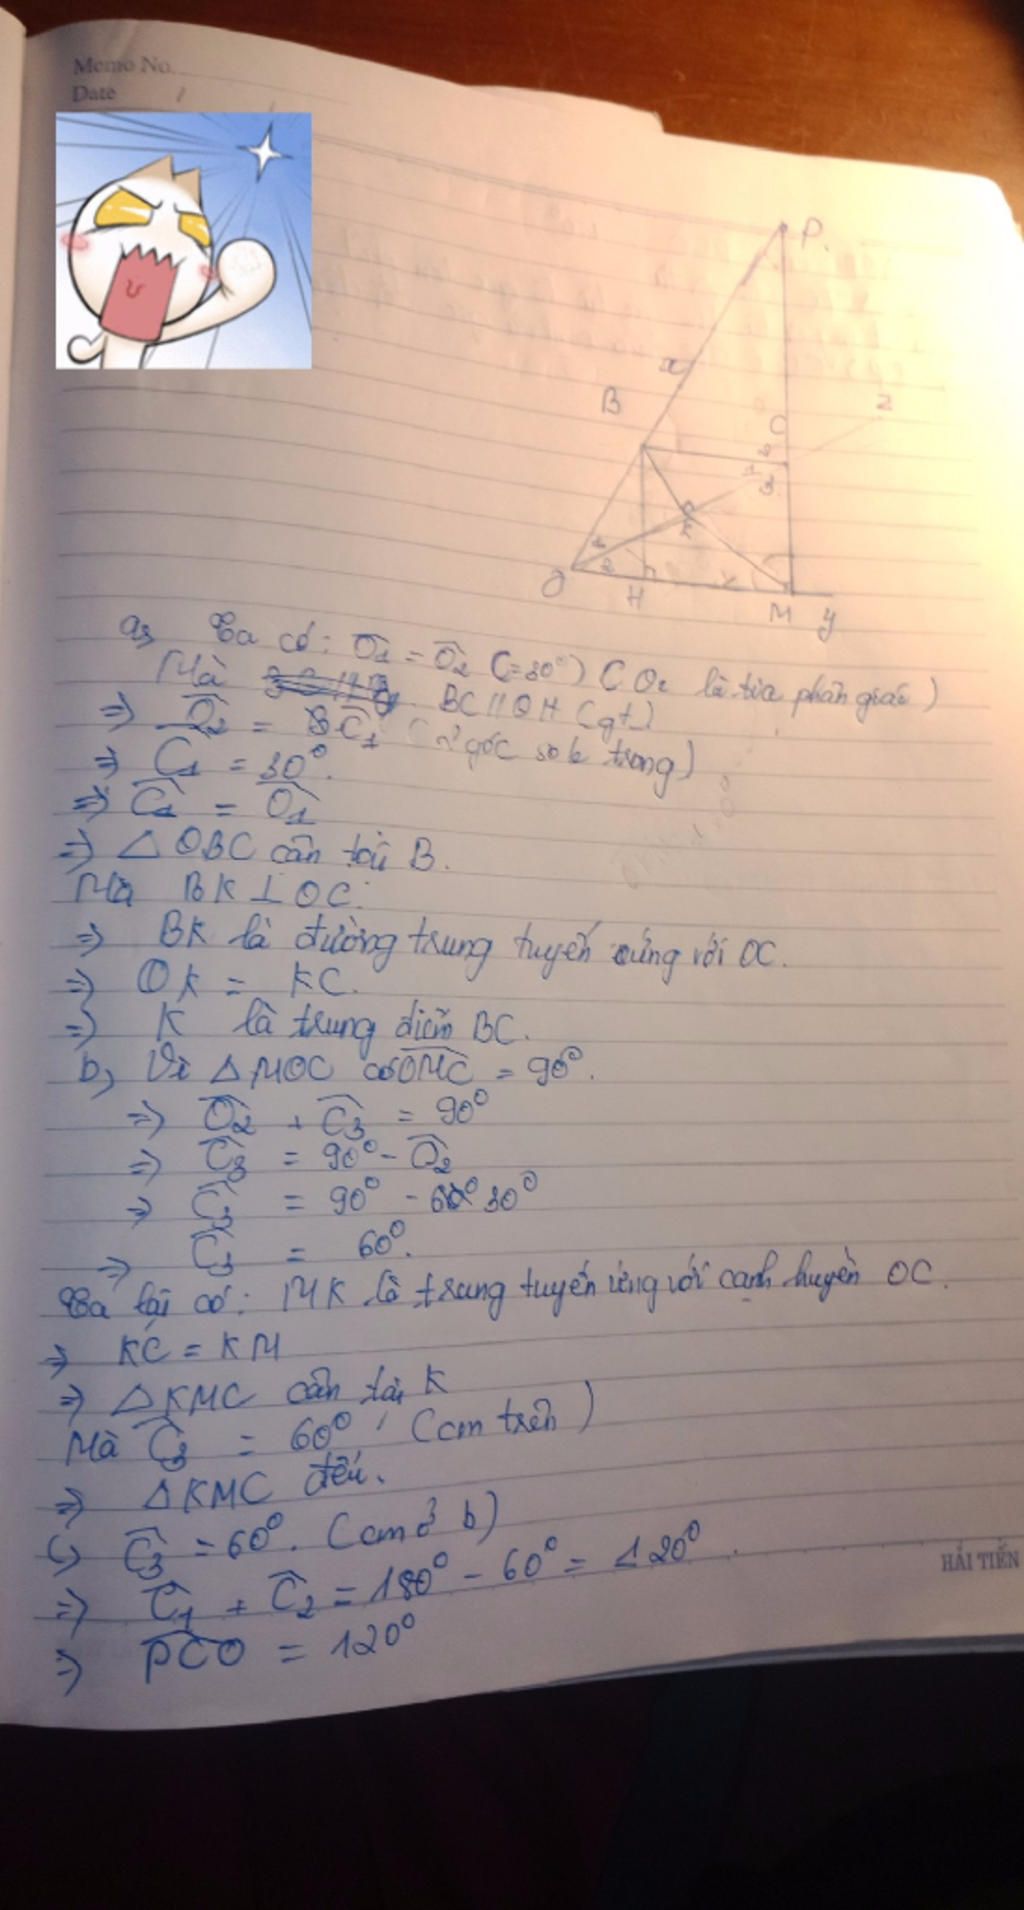 Memo No.
Date
P.
x
B
z
C
K
O
H
M
y
a, Ta có: O1 = O2 (=30°) ( Oz là tia phân giác )
Mà BC // OH (gt)
=> O2 = C1 ( góc so le trong)
=> C1 = 30°.
=> C1 = O1
=> △ OBC cân tại B.
Mà BK ⊥ OC.
=> BK là đường trung tuyến ứng với OC.
=> OK = KC.
=> K là trung điểm BC.
b, Vì △ MOC có OMC = 90°.
=> O2 + C3 = 90°
=> C3 = 90° - O2
=> C3 = 90° - 30°
=> C3 = 60°.
Ta lại có: MK là trung tuyến ứng với cạnh huyền OC.
=> KC = KM
=> △ KMC cân tại K
Mà C3 = 60° (cm trên)
=> △ KMC đều.
c, C3 = 60°. (cm ở b)
=> C1 + C2 = 180° - 60° = 120°.
=> PCO = 120°
HẢI TIẾN